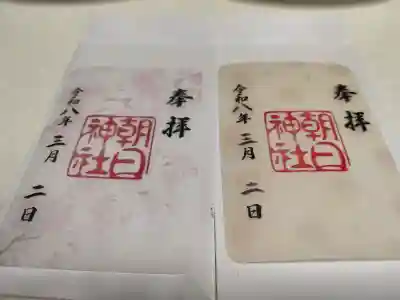 奉拝
朝日神社
令和八年
三月
二日
奉拝
朝日神社
令和八年
三月
二日